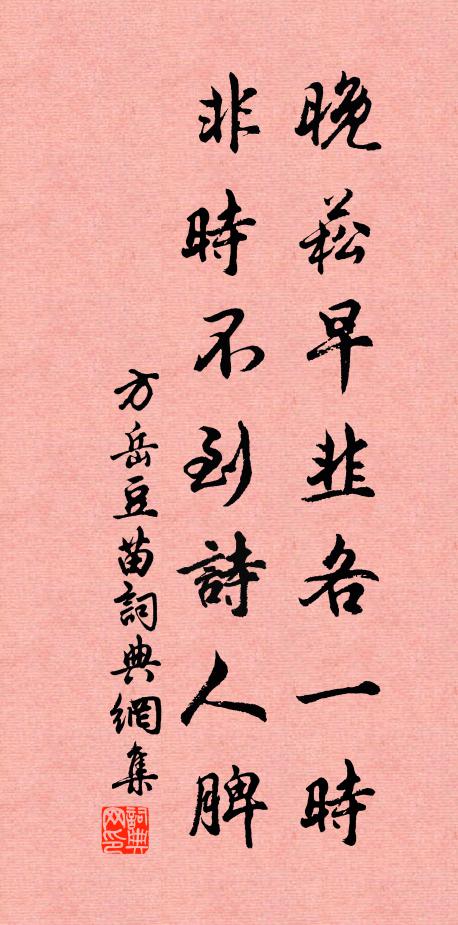 晚菘早韭各一時
非時不到詩人脾
方岳豆苗詞典網集
詞典网印